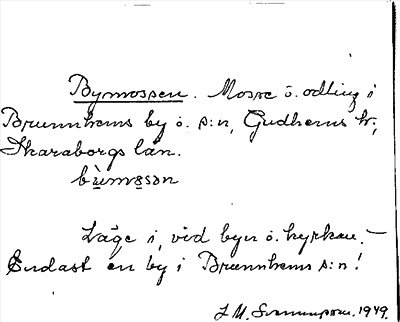 Bymossen. Mosse o. odling i
Brunnhems by o. s:n, Gudhems hd,
Skaraborgs län.
bỳmɷsən
Läge i, vid byn o. kyrkan. –
Endast en by i Brunnhems s:n!
J. M. 1949.